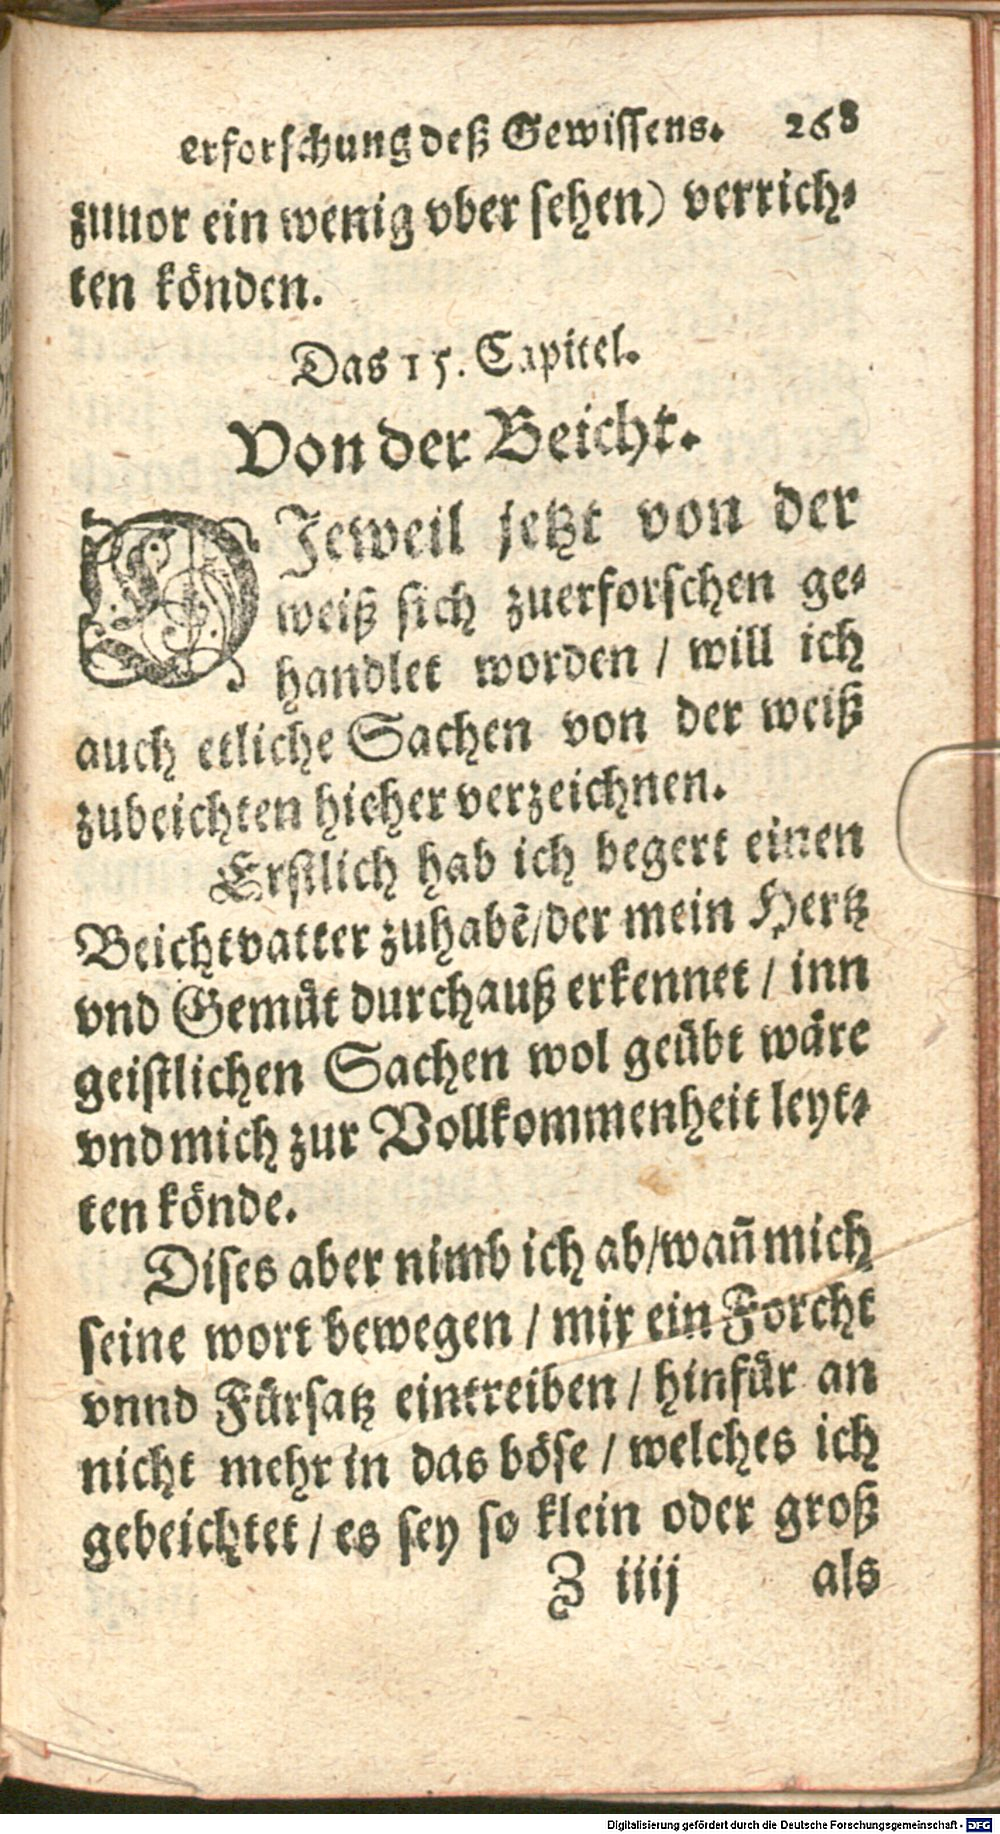 erforschung deß Gewissens. 268
zuuor ein wenig vber sehen) verrich-
ten könden.
Das 15. Capitel.
Von der Beicht.
DJeweil jetzt von der
weiß sich zuerforschen ge-
handlet worden / will ich
auch etliche Sachen von der weiß
zubeichten hieher verzeichnen.
Erstlich hab ich begert einen
Beichtvatter zuhabẽ/der mein Hertz
vnd Gemüt durchauß erkennet / inn
geistlichen Sachen wol geübt wäre
vnd mich zur Vollkommenheit leyt-
ten könde.
Dises aber nimb ich ab/wañ mich
seine wort bewegen / mir ein Forcht
vnnd Fürsatz eintreiben / hinfür an
nicht mehr in das böse / welches ich
gebeichtet / es sey so klein oder groß
Z iiij als
Digitalisierung gefördert durch die Deutsche Forschungsgemeinschaft - DFG